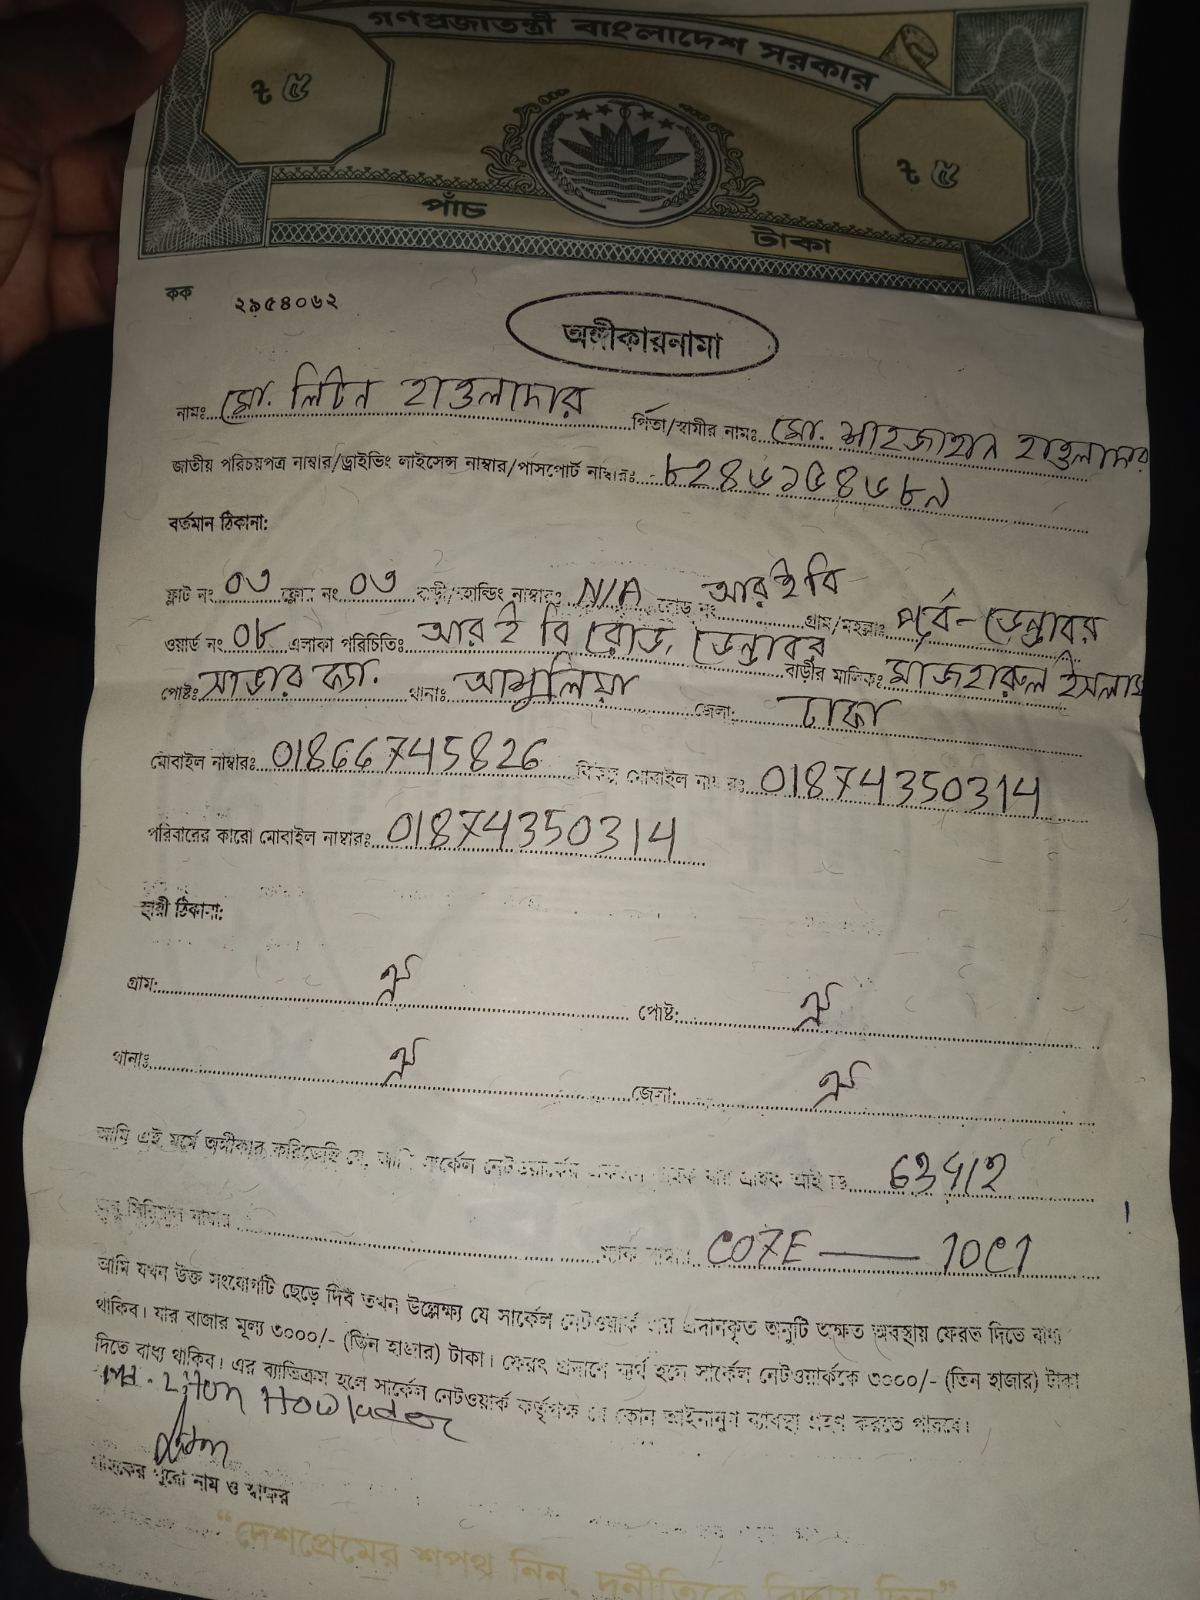 গণপ্রজাতন্ত্রী বাংলাদেশ সরকার
৳ ৫ ৳ ৫
পাঁচ টাকা
কক ২৯৫৪০৬২
অঙ্গীকারনামা
নামঃ মো. লিটন হাওলাদার পিতা/স্বামীর নামঃ মো. শাহজাহান হাওলাদার
জাতীয় পরিচয়পত্র নাম্বার/ড্রাইভিং লাইসেন্স নাম্বার/পাসপোর্ট নাম্বারঃ
বর্তমান ঠিকানা:
ফ্লাট নং ০৩ ফ্লোর নং ০৩ বাড়ী/হোল্ডিং নাম্বারঃ N/A রোড নং আর ই বি গ্রাম/মহল্লাঃ পূর্ব-ডেন্ডাবর
ওয়ার্ড নং ০৮ এলাকা পরিচিতিঃ আর ই বি রোড, ডেন্ডাবর বাড়ীর মালিক: মাজহারুল ইসলাম
পোষ্টঃ সাভার ক্যা. থানাঃ আশুলিয়া জেলা: ঢাকা
মোবাইল নাম্বারঃ 01866745826 বিকল্প মোবাইল নাম্বারঃ 01874350314
পরিবারের কারো মোবাইল নাম্বারঃ 01874350314
স্থায়ী ঠিকানা:
গ্রাম: ঐ পোষ্ট: ঐ
থানাঃ ঐ জেলা: ঐ
আমি এই মর্মে অঙ্গীকার করিতেছি যে, আমি সার্কেল নেটওয়ার্কের একজন গ্রাহক যার গ্রাহক আই ডি 63412
নাম্বার C07E — 10C1
আমি যখন উক্ত সংযোগটি ছেড়ে দিব তখন উল্লেখ্য যে সার্কেল নেটওয়ার্ক এর প্রদানকৃত অনুটি অক্ষত অবস্থায় ফেরত দিতে বাধ্য
থাকিব। যার বাজার মূল্য ৩০০০/- (তিন হাজার) টাকা। ফেরৎ প্রদানে ব্যর্থ হলে সার্কেল নেটওয়ার্ককে ৩০০০/- (তিন হাজার) টাকা
দিতে বাধ্য থাকিব। এর ব্যাতিক্রম হলে সার্কেল নেটওয়ার্ক কর্তৃপক্ষ যে কোন আইনানুগ ব্যাবস্থা গ্রহণ করতে পারবে।
Md. Liton Howlader
গ্রাহকের পুরো নাম ও স্বাক্ষর
“দেশপ্রেমের শপথ নিন, দুর্নীতিকে বিদায় দিন”